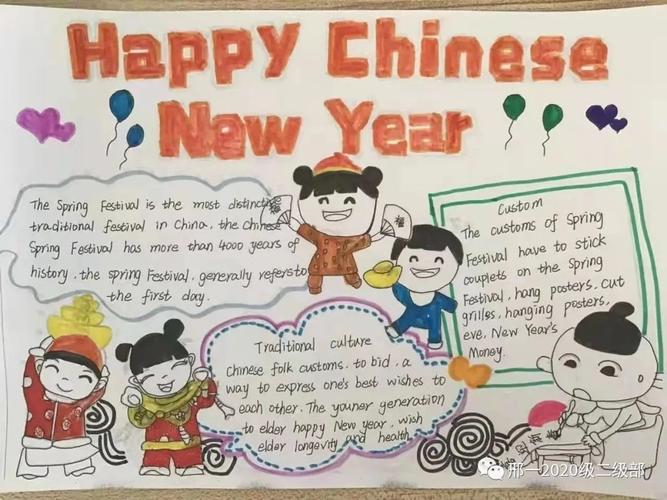 Happy Chinese
New Year
The Spring Festival is the most distinctive
traditional festival in China. the Chinese
Spring Festival has more than 4000 years of
history. the spring Festival. generally refers to
the first day.
Custom
The customs of Spring
Festival have to stick
couplets on the Spring
Festival, hang posters, cut
grilles, hanging posters,
eve, New Year's
Money.
Traditional culture
Chinese folk customs. to bid. a
way to express one's best wishes to
each other. The youner generation
to elder happy New year. wish
elder longevity and health
邢一2020级二级部